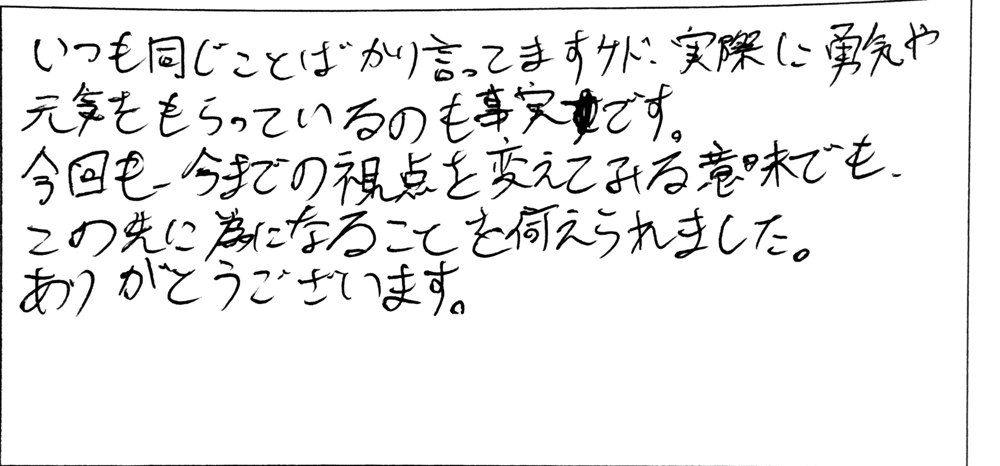 いつも同じことばかり言ってますケド、実際に勇気や
元気をもらっているのも事実です。
今回も、今までの視点を変えてみる意味でも、
この先に為になることを伺えられました。
ありがとうございます。